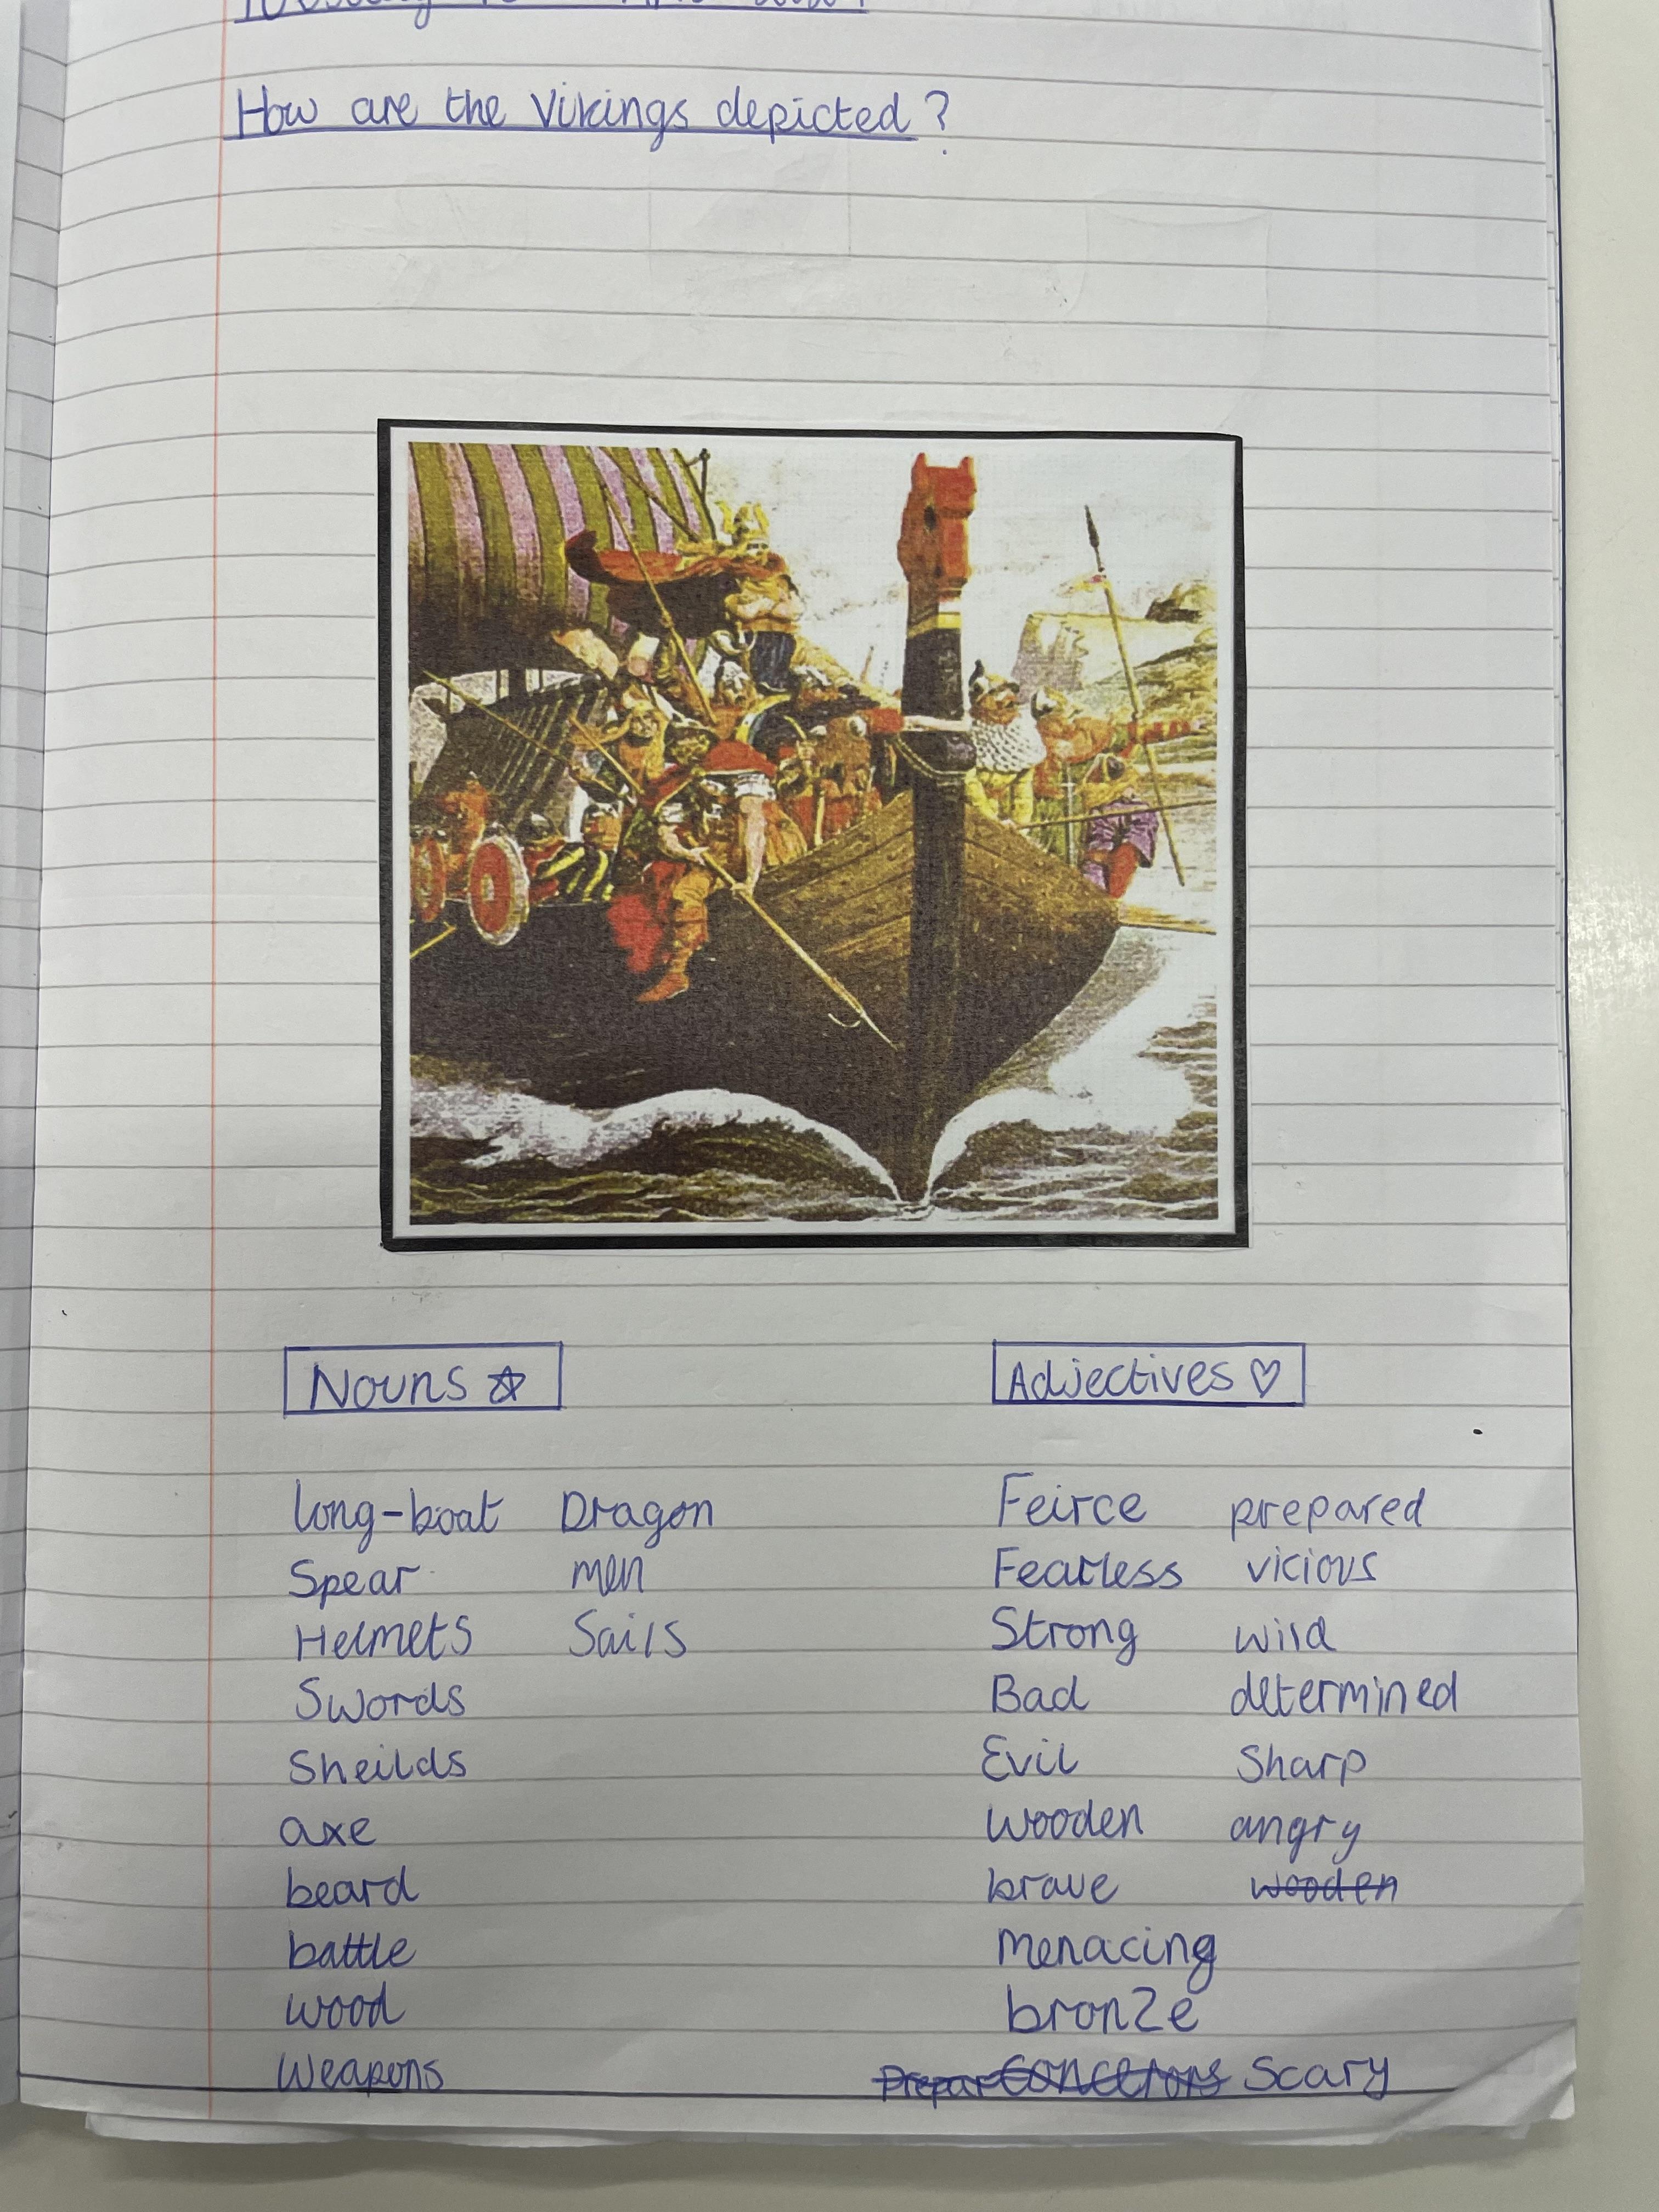 How are the Vikings depicted?
Nouns
Adjectives
long-boat Dragon
Spear men
Helmets Sails
Swords
Sheilds
axe
beard
battle
wood
Weapons
Feirce prepared
Fearless vicious
Strong wild
Bad determined
Evil Sharp
Wooden angry
brave wooden
menacing
bronze
Prepar Scary